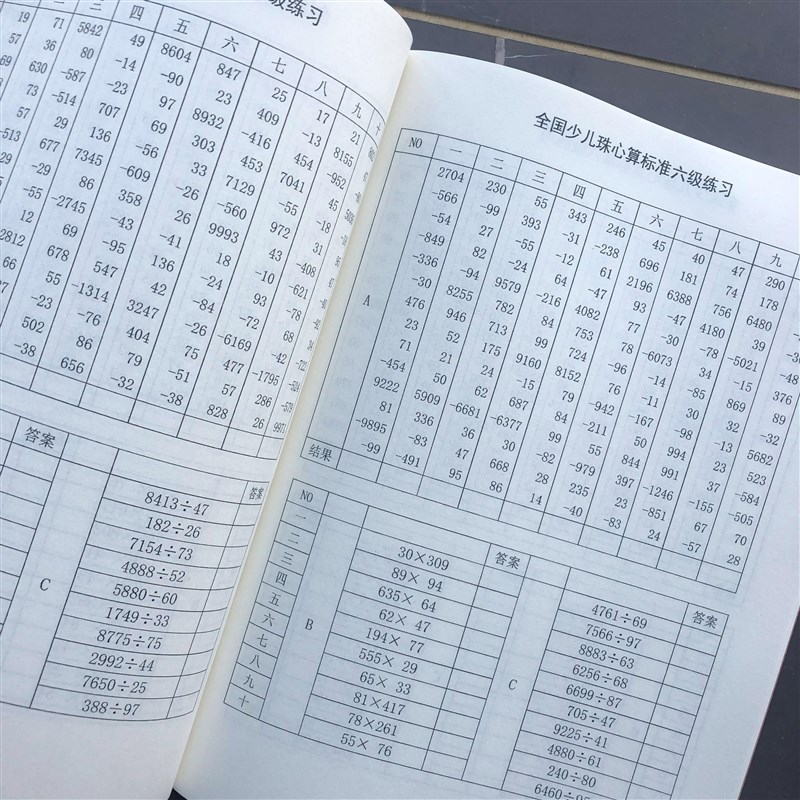 级练习
四 五 六 七 八 九 十
19 71 5842 49 8604 847 25 17 21
57 36 80 -14 -90 23 409 -13 8155
69 630 -587 -23 97 8932 -416 454 -952
73 -514 707 69 303 453 7041 45
57 29 136 -56 33 7129 -55 -18
-513 677 7345 -609 26 -560 972 31
29 -29 86 358 26 9993 43 -408
-55 -2745 -43 -41 18 -10 -621
12 69 -95 136 -24 93 -78
2812 678 547 42 -84 -72 68
66 55 -1314 3247 -26 -6169 -42
-23 -76 404 75 477 -1795
502 86 79 -51 57 286 -579
-38 656 -32 -38 828 26 9971
答案 C 答案
8413÷47
182÷26
7154÷73
4888÷52
5880÷60
1749÷33
8775÷75
2992÷44
7650÷25
388÷97
全国少儿珠心算标准六级练习
NO 一 二 三 四 五 六 七 八 九
A
2704 230 55 343 246 45 40 47 290
-566 -99 393 -31 -238 696 181 74 178
-54 27 -55 -12 61 2196 6388 756 6480
-849 82 -24 64 -47 93 -47 4180 39
-336 -94 9579 -216 4082 77 -30 -78 -5021
-30 8255 782 84 753 78 -6073 34 -15 376
476 946 713 99 724 -96 -14 -85 869 89
23 52 175 9160 8152 76 -11 30 32 -32
71 21 24 -15 79 -942 -167 -98 -13 5682
-454 50 62 687 84 -211 50 994 37 523
9222 5909 -6681 -6377 99 55 844 991 23 -584
81 336 36 30 -82 -979 397 -1246 -155 -505
-9895 -83 47 668 28 235 23 -851 67 70
-99 -491 95 86 14 -40 -83 24 -57 28
结果
NO B 答案 C 答案
一 30×309 4761÷69
二 89× 94 7566÷97
三 635× 64 8883÷63
四 62× 47 6256÷68
五 194× 77 6699÷87
六 555× 29 705÷47
七 65× 33 9225÷41
八 81×417 4880÷61
九 78×261 240÷80
十 55× 76 6460÷95